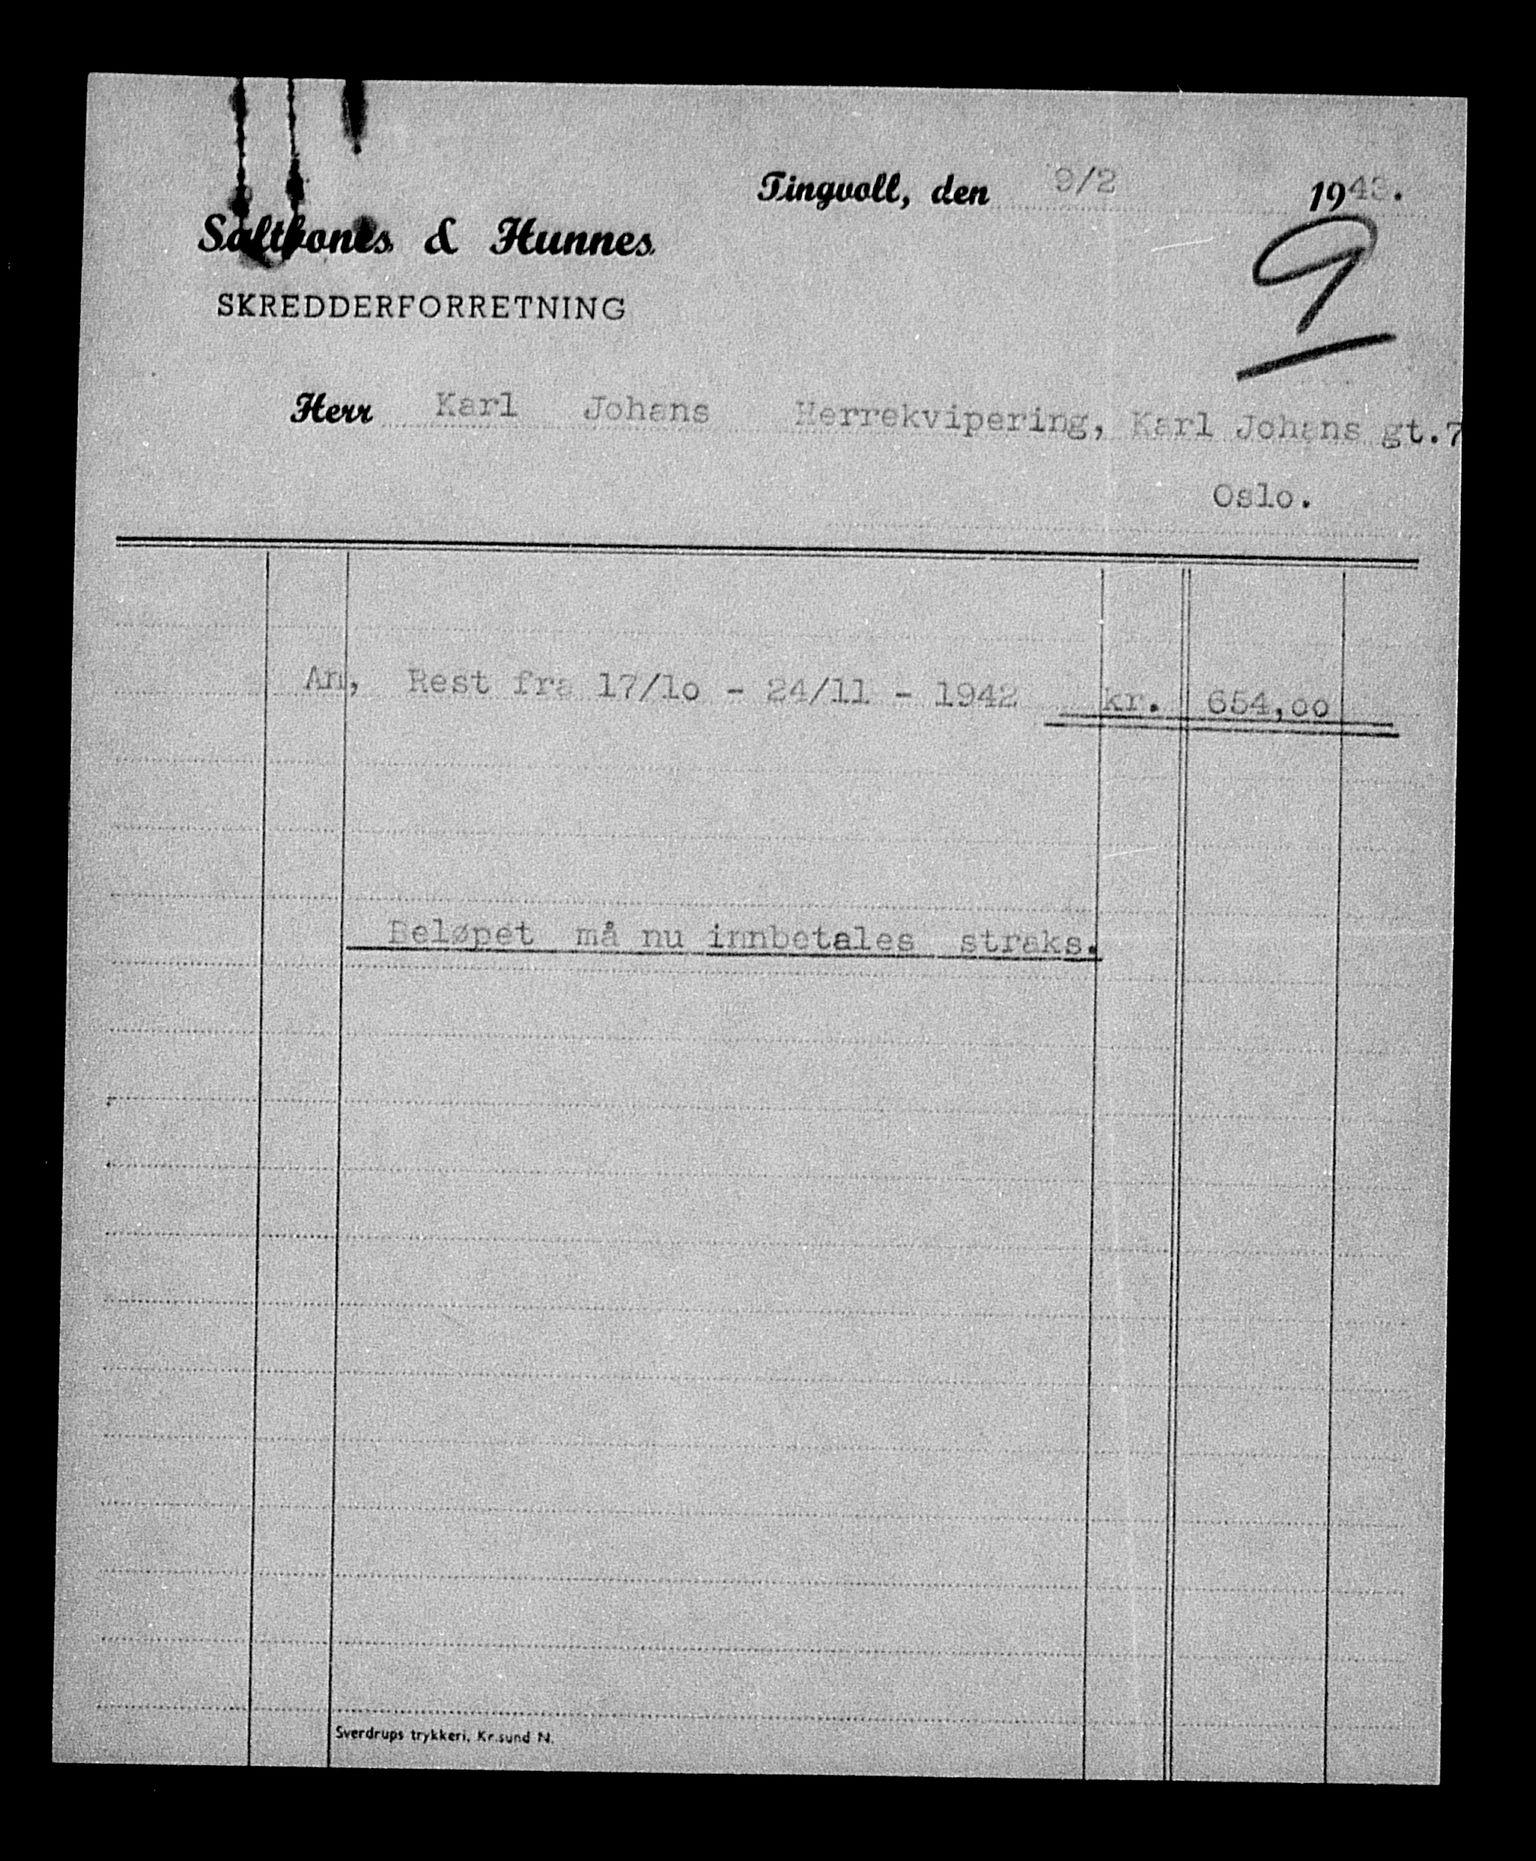 Tingvoll, den 9/2 1943.
Saltkones & Hunnes
SKREDDERFORRETNING
9
Herr Karl Johans Herrekvipering, Karl Johans gt.7
Oslo.
An, Rest fra 17/lo - 24/11 - 1942 kr. 654,oo
Beløpet må nu innbetales straks.
Sverdrups trykkeri, Kr.sund N.